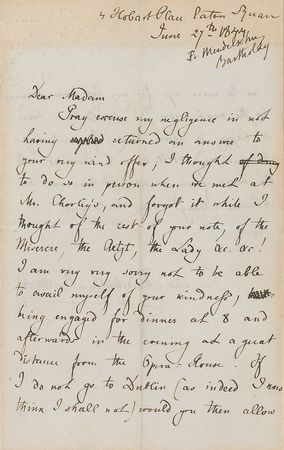 4 Hobart Place Eaton Square
June 27th 1844
F. Mendelssohn
Bartholdy
Dear Madam
Pray excuse my negligence in not
having returned an answer to
your very kind offer; I thought
to do so in person when we met at
Mr. Chorley's, and forgot it while I
thought of the rest of your note, of the
Miserere, the Artist, the Lady &c. &c!
I am very very sorry not to be able
to avail myself of your kindness,
being engaged for dinner at 8 and
afterwards in the evening at a great
distance from the Opera-House. If
I do not go to Dublin (as indeed I now
think I shall not) would you then allow